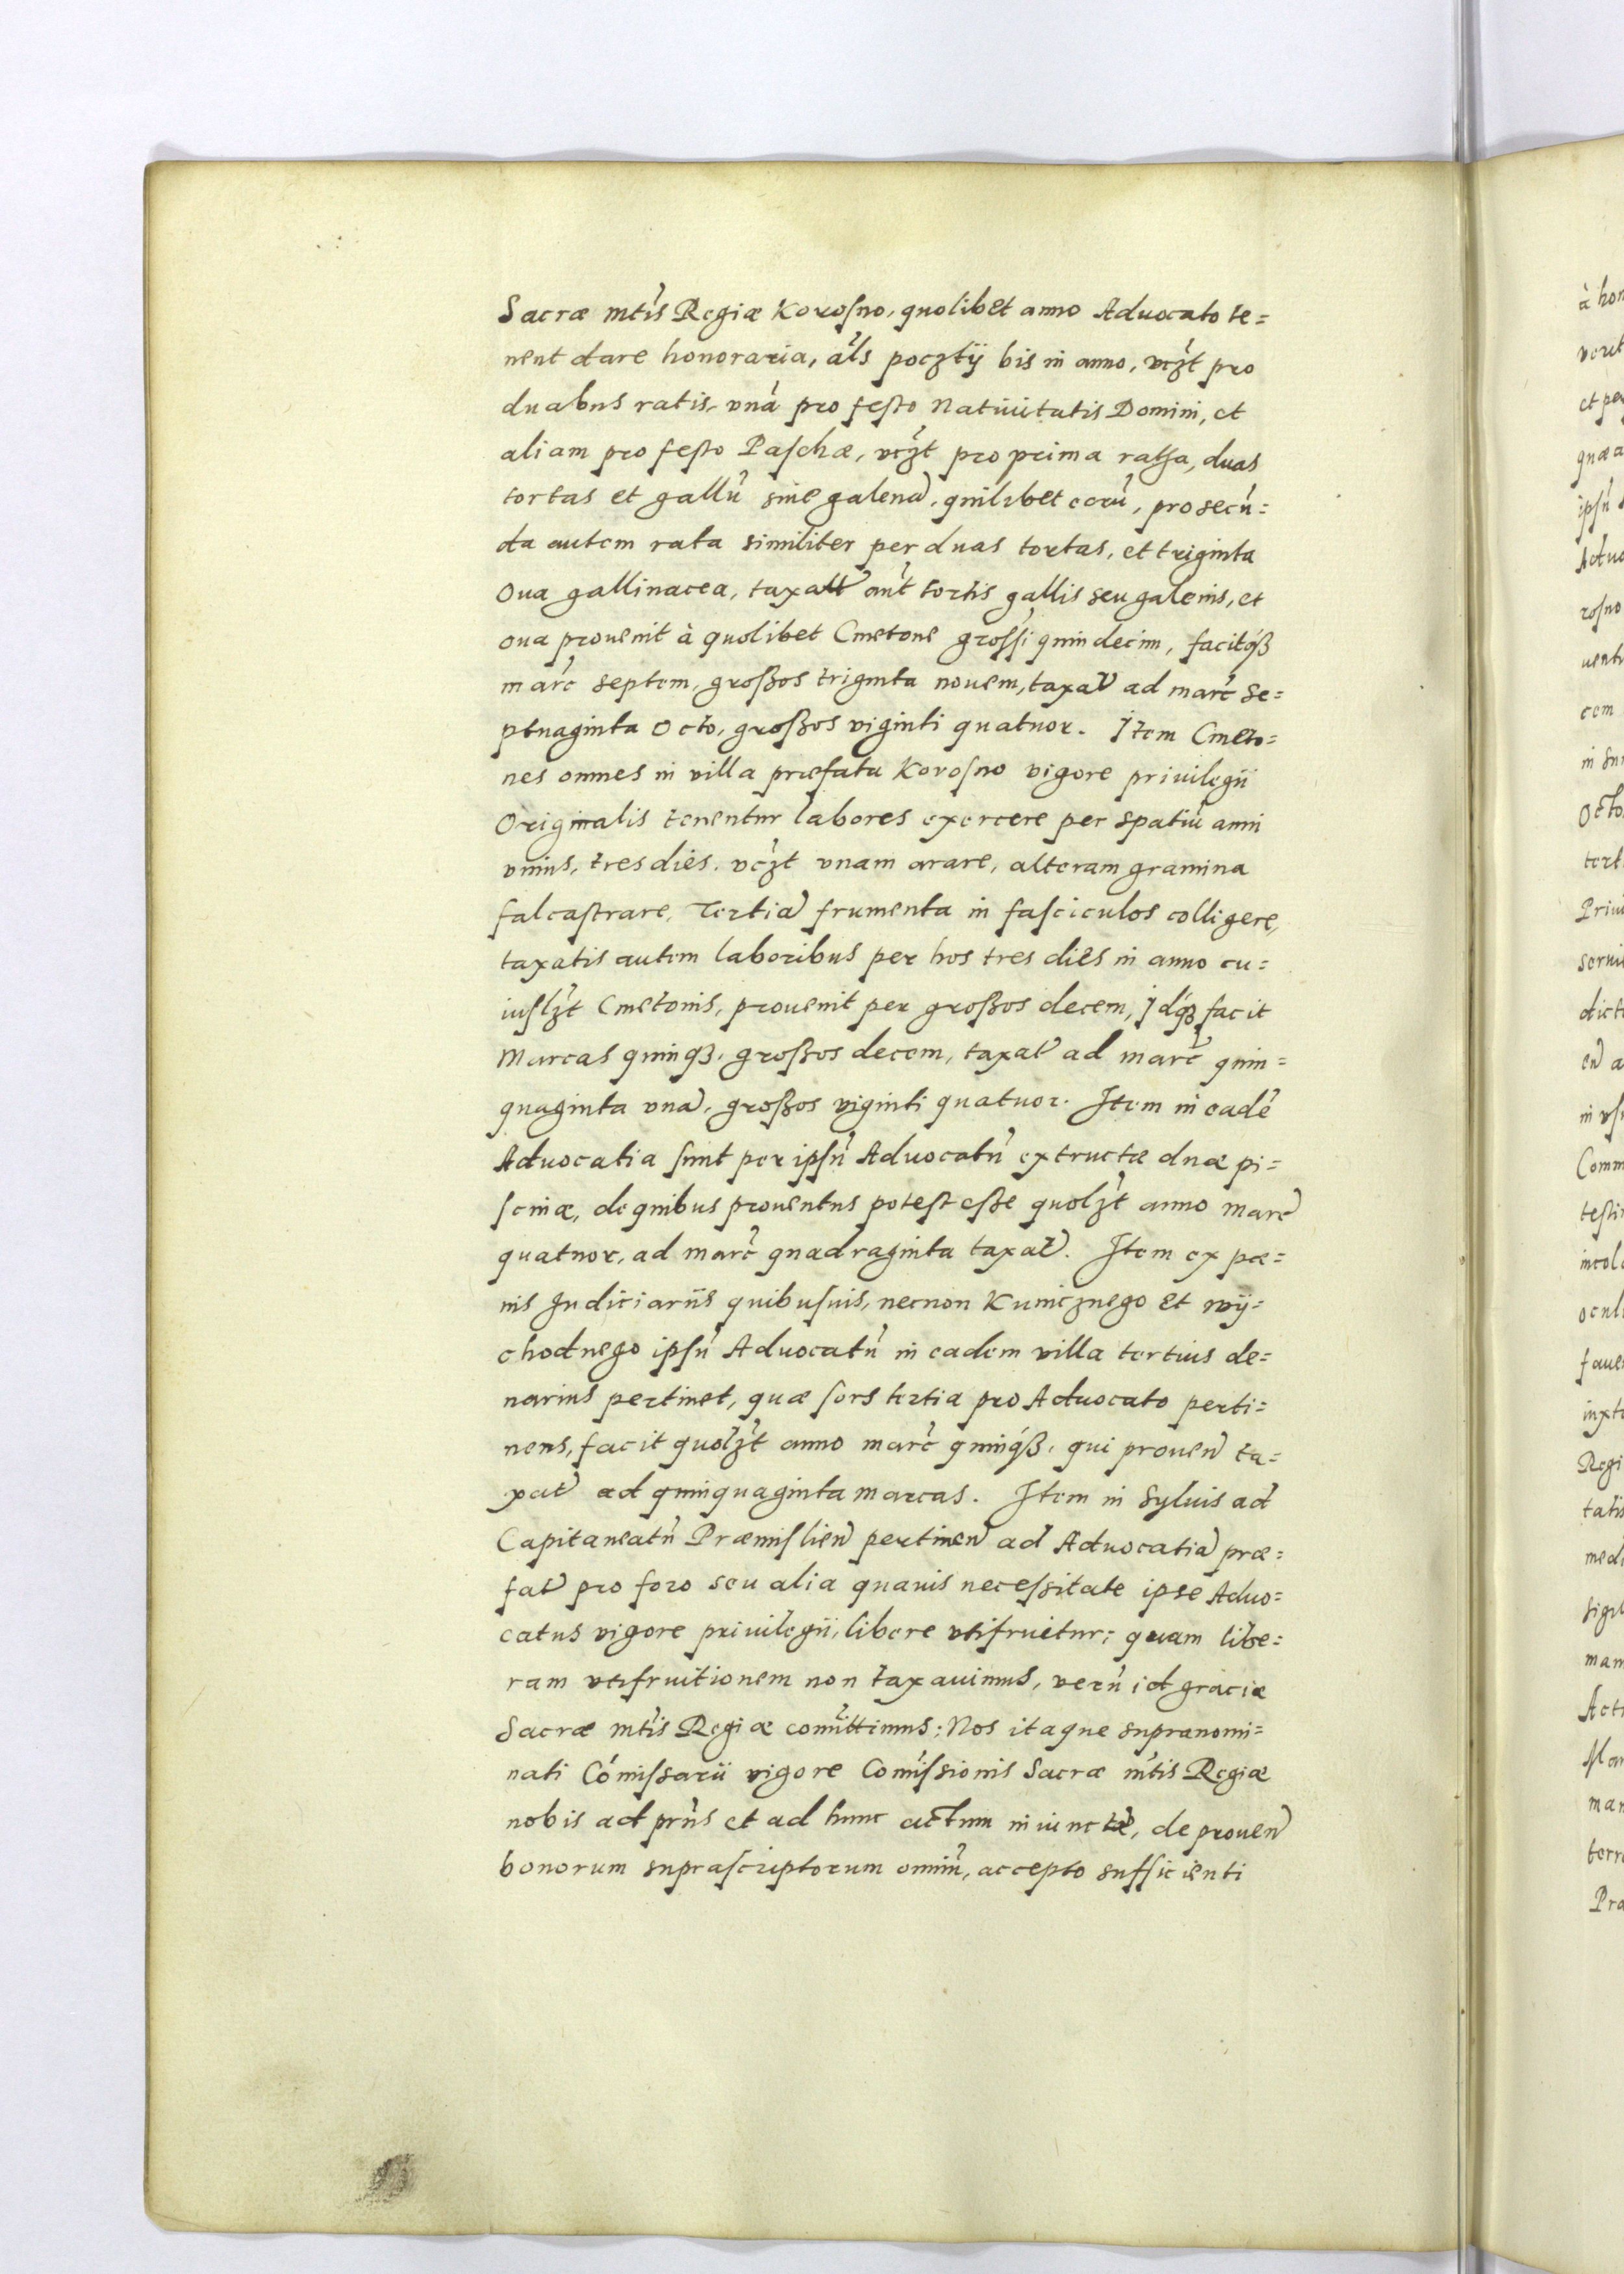 Sacræ mt̃is Regiæ Korosno, quolibet anno Aduocato te=
nent dare honoraria, al̃s pocztÿ bis in anno, vcz̃t pro
duabus ratis, vnã pro festo Natiuitatis Domini, et
aliam pro festo Paschæ, vcz̃t pro prima ratha, duas
tortas et gallũ siue galenã, quilibet eorũ, pro secũ=
da autem rata similiter per duas tortas, et triginta
Oua gallinacea, taxatt̃ aut̃ tortis gallis seu galenis, et
oua prouenit à quolibet Cmetone grossi quindecim, facitqꝫ
marc̃ septem, grossos triginta nouem, taxat̃ ad marc̃ se=
ptuaginta Octo, grossos viginti quatuor. Item Cmeto=
nes omnes in villa præfata Korosno vigore priuilegii
Originalis tenentur labores exercere per spatiũ anni
vnius, tres dies. vcz̃t vnam arare, alteram gramina
falcastrare, Tertiã frumenta in fasciculos colligere,
taxatis autem laboribus per hos tres dies in anno cu=
iuslz̃t Cmetonis, prouenit per grossos decem, Idqꝫ facit
Marcas quinqꝫ, grossos decem, taxat̃ ad marc̃ quin=
quaginta vnã, grossos viginti quatuor. Item in eadẽ
Aduocatia sunt per ipsũ Aduocatũ extructæ duæ pi=
scinæ, de quibus prouentus potest esse quolz̃t anno marc̃
quatuor, ad marc̃ quadraginta taxat̃. Item ex pæ=
nis Judiciariis quibusuis, necnon Kunicznego et wÿ=
chodnego ipsũ Aduocatũ in eadem villa tertius de=
narius pertinet, quæ sors tertia pro Aduocato perti=
nens, facit quolz̃t anno marc̃ quinqꝫ, qui prouen̄ ta=
xat̃ ad quinquaginta marcas. Item in Syluis ad
Capitaneatũ Præmislien̄ pertinen̄ ad Aduocatiã præ=
fat̃ pro foro seu alia quauis necessitate ipse Aduo=
catus vigore priuilegii, libere vtifruetur; quam libe=
ram vtifruitionem non taxauimus, verũ id graciæ
Sacræ mt̃is Regiæ com̃ittimus: Nos itaque supranomi=
nati Cõmissarii vigore Com̃issionis Sacræ mt̃is Regiæ
nobis ad prñs et ad hunc actum iniunctæ, de prouen̄
bonorum suprascriptorum omniũ, accepto sufficienti